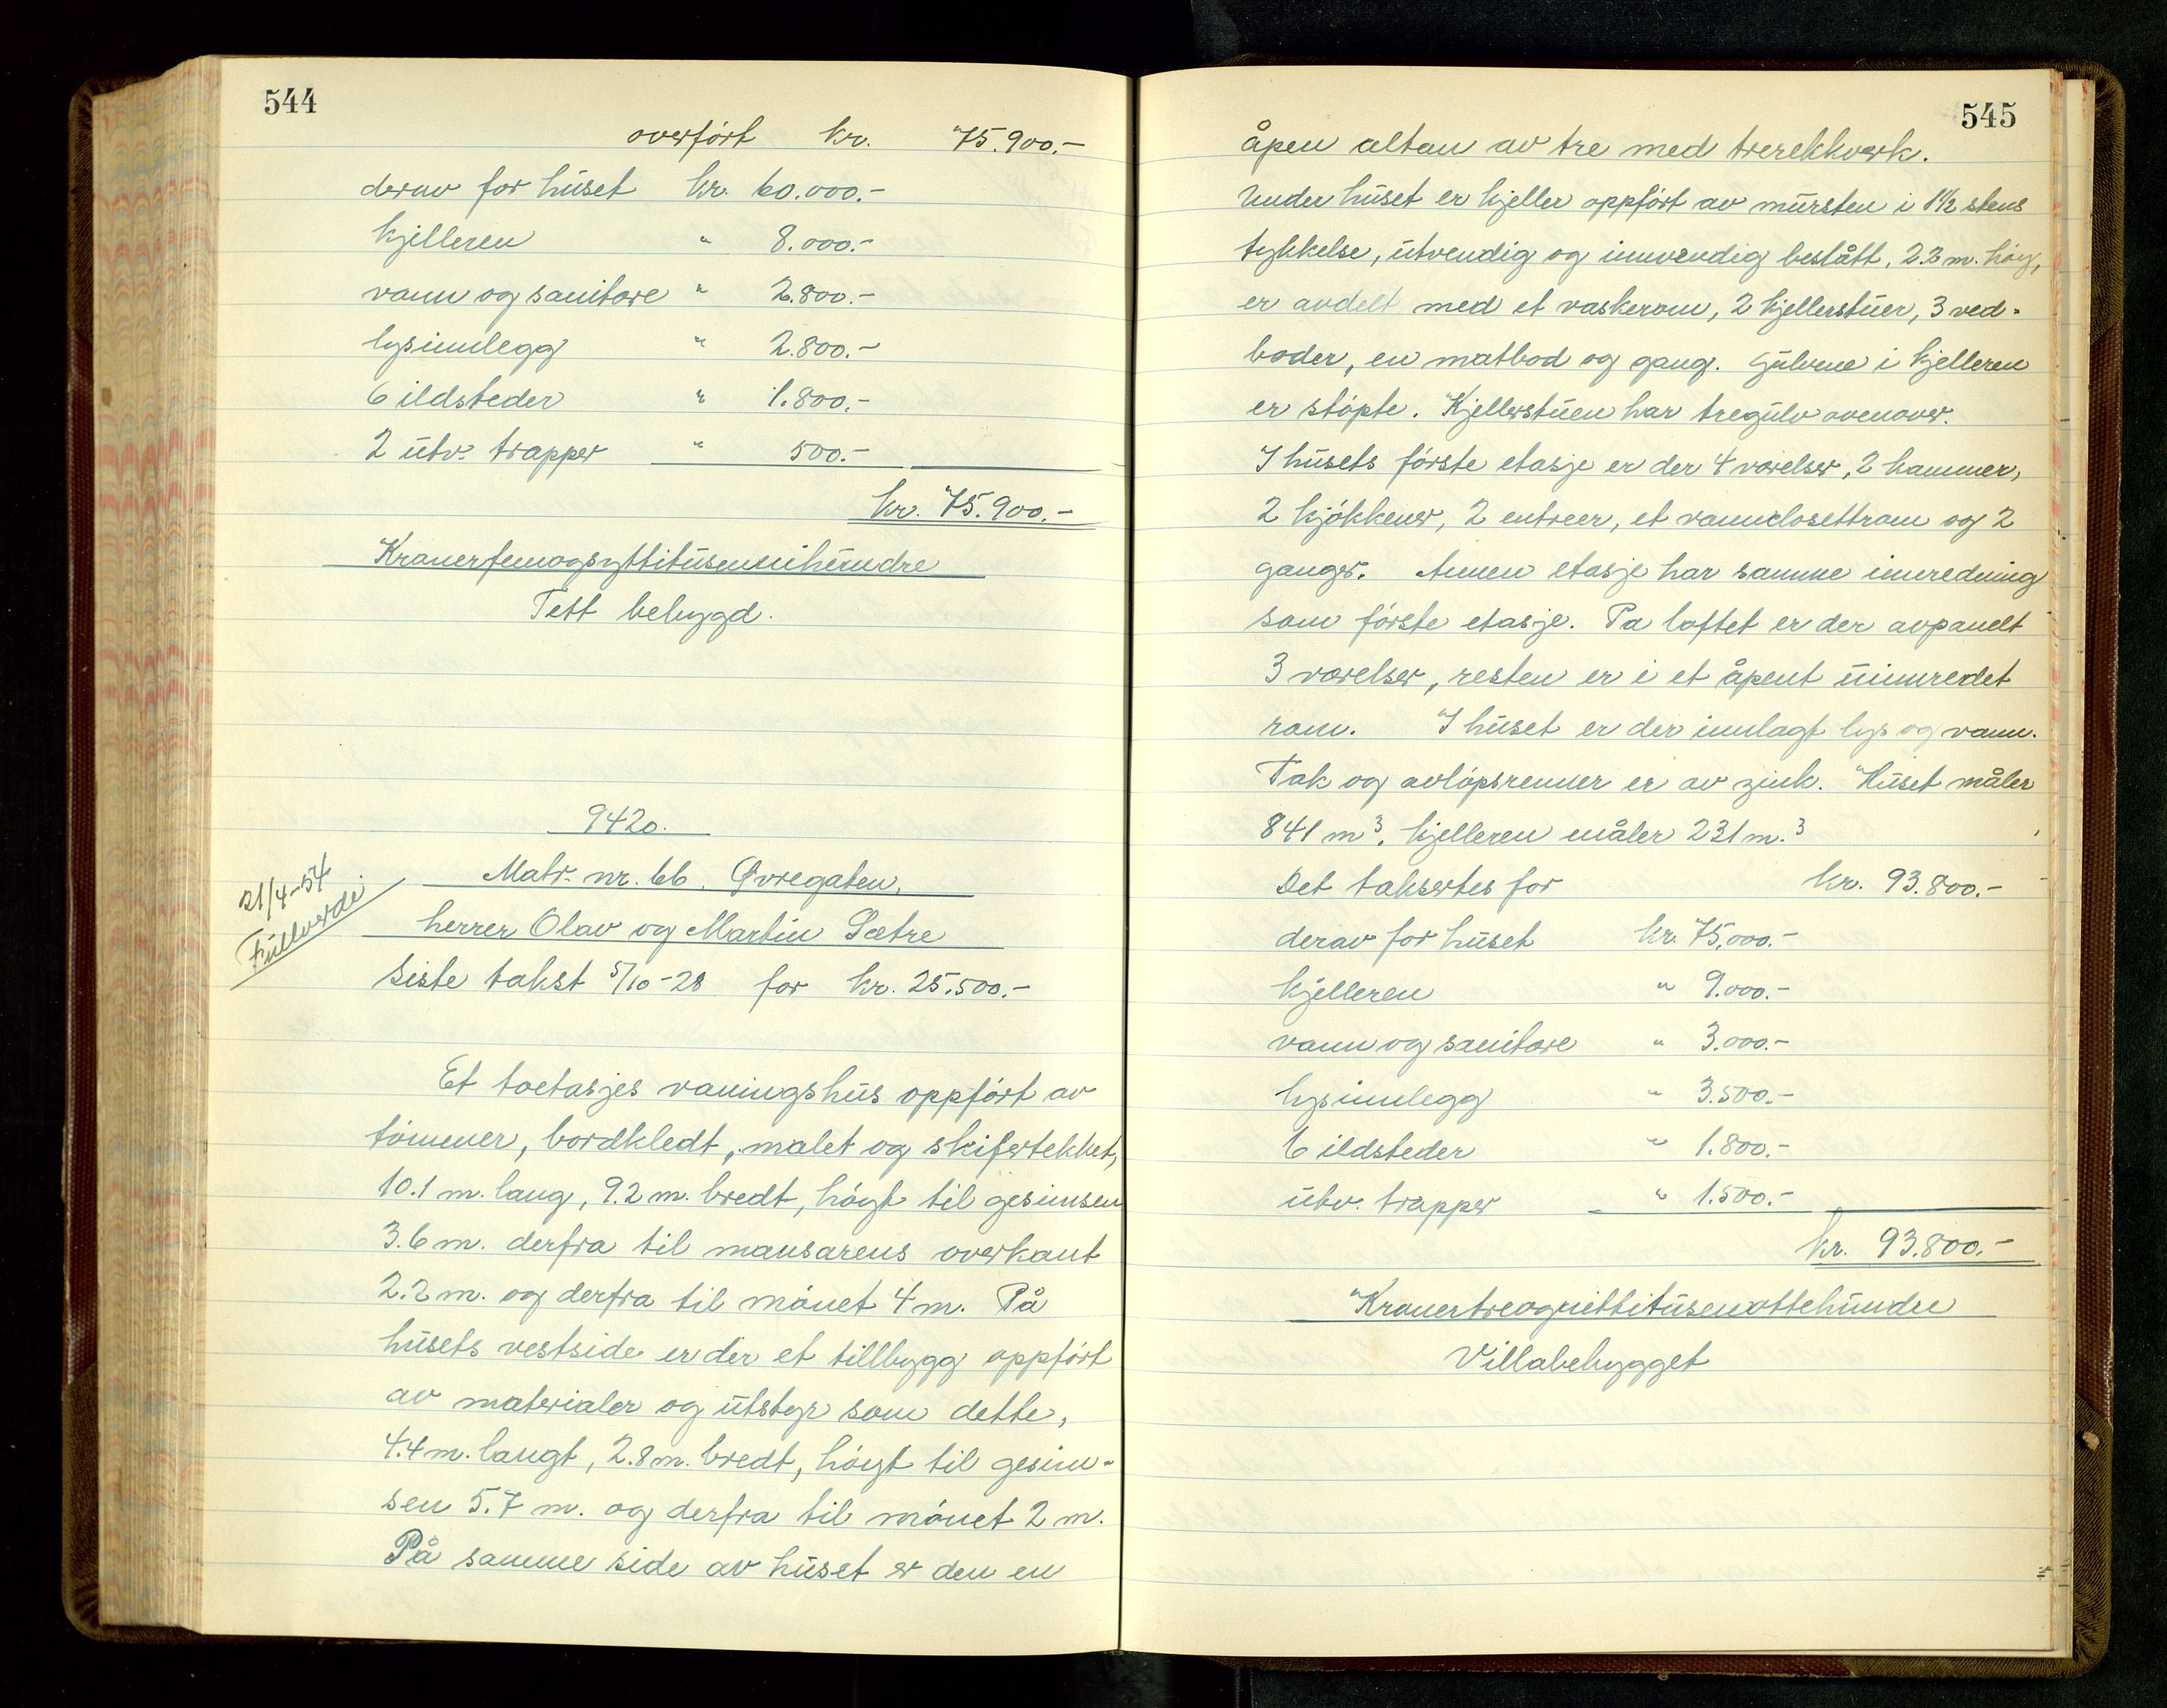 544
overført kr. 75.900.-
derav for huset kr. 60.000.-
kjelleren " 8.000.-
vann og sanitære " 2.800.-
lysinnlegg " 2.800.-
6 ildsteder " 1.800.-
2 utv. trapper " 500.-
kr. 75.900.-
Kronerfemogsyttitusennihundre
Tett bebygd.
9420.
Matr. nr. 66. Øvregaten,
herrer Olav og Martin Sætre
21/4-54
Fullverdi
Siste takst 5/10-28 for kr. 25.500.-
Et toetasjes vaningshus oppført av
tømmer, bordkledt, malet og skifertekket,
10.1 m. lang, 9.2 m. bredt, høgt til gesimsen
3.6 m. derfra til mansarens overkant
2.2 m. og derfra til mønet 4 m. På
husets vestside er der et tillbygg oppført
av materialer og utstyr som dette,
4.4 m. langt, 2.8 m. bredt, høgt til gesim-
sen 5.7 m. og derfra til mønet 2 m.
På samme side av huset er den en
545
åpen altan av tre med trerekkverk.
Under huset er kjeller oppført av mursten i 1 1/2 stens
tykkelse, utvendig og innvendig beslått, 2.3 m. høg,
er avdelt med et vaskerom, 2 kjellerstuer, 3 ved-
boder, en matbod og gang. Gulvene i kjelleren
er støpte. Kjellerstuen har tregulv ovenover.
I husets første etasje er der 4 værelser, 2 kammer,
2 kjøkkener, 2 entreer, et vannclosettrom og 2
ganger. Annen etasje har samme innredning
som første etasje. Pa loftet er der avpanelt
3 værelser, resten er i et åpent uinnredet
rom. I huset er der innlagt lys og vann.
Tak og avløpsrenner er av zink. Huset måler
841 m³. kjelleren måler 231 m.³
Det taksertes for kr. 93.800.-
derav for huset kr. 75.000.-
kjelleren " 9.000.-
vann og sanitære " 3.000.-
lysinnlegg " 3.500.-
6 ildsteder " 1.800.-
utv. trapper " 1.500.-
kr. 93.800.-
Kronertreognittitusenottehundre
Villabebygget